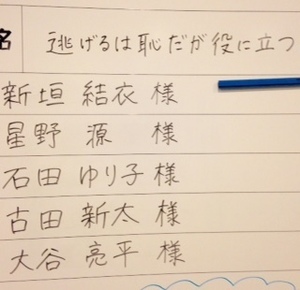 名 逃げるは恥だが役に立つ
新垣 結衣 様
星野 源 様
石田 ゆり子 様
古田 新太 様
大谷 亮平 様